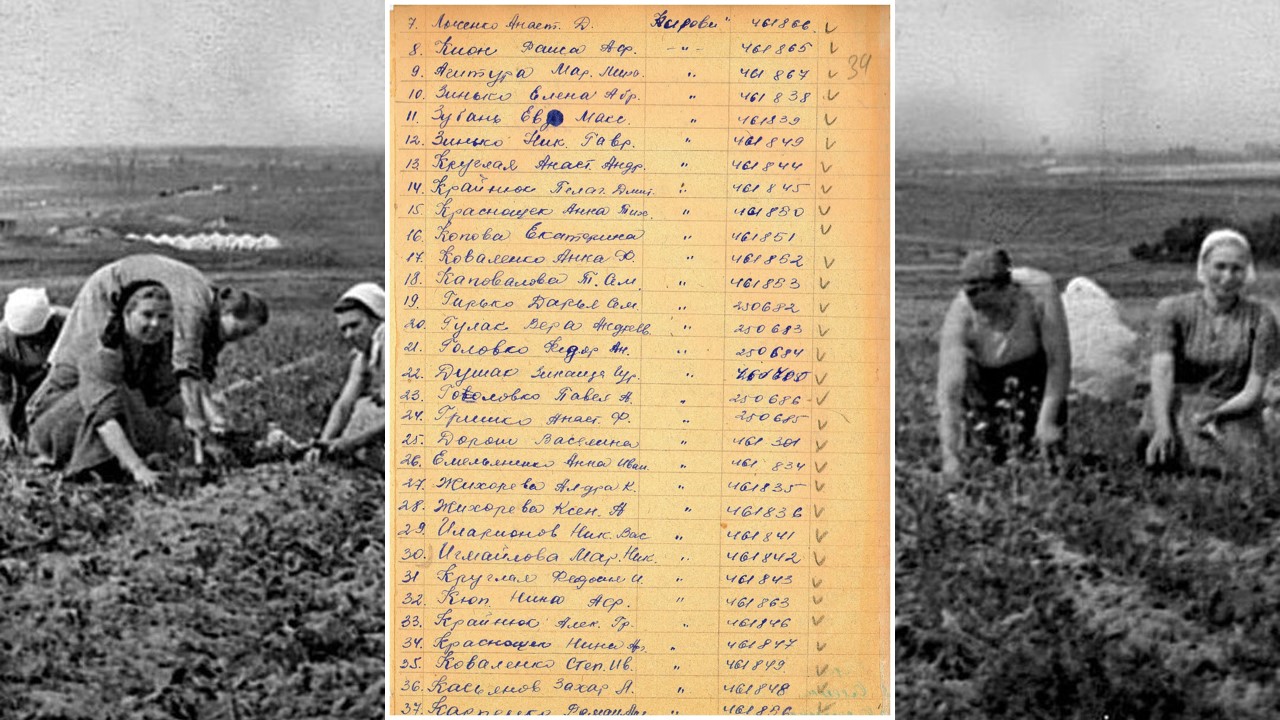 7. Льченко Анаст. Д. "Кирови" 461866
8. Кион Раиса Афр. -"- 461865
9. Агитура Мар. " 461867
10. Зинько Елена Абр. " 461838
11. Зубань Ев Макс. " 461839
12. Зинько Ник. Гавр. " 461849
13. Круглая Анаст. Андр. " 461844
14. Крайнюк Пелаг. Дмит. " 461845
15. Краснощек Анна Тих. " 461850
16. Копова Екатерина " 461851
17. Коваленко Анна Ф. " 461852
18. Каповалова Т. Сем. " 461853
19. Гирько Дарья Сем. " 250682
20. Гулак Вера Андреев. " 250683
21. Головко Федор Ан. " 250684
22. Душао Зинаида "
23. Головко Павел А. " 250686
24. Гришко Анаст. Ф. " 250685
25. Дорош Василина " 461301
26. Емельяненко Анна Иван. " 461834
27. Жихорева Алдра К. " 461835
28. Жихорева Ксен. А " 461836
29. Иларионов Ник. Вас " 461841
30. Исмайлова Мар. Ник. " 461842
31 Круглая Федосия И. " 461843
32. Кюп Нина Афр. " 461863
33. Крайнюк Алек. Гр. " 461846
34. Краснощек Нина " 461847
35. Коваленко Степ. Ив. " 461849
36. Касьянов Захар Л. " 461848
37. Роман
34